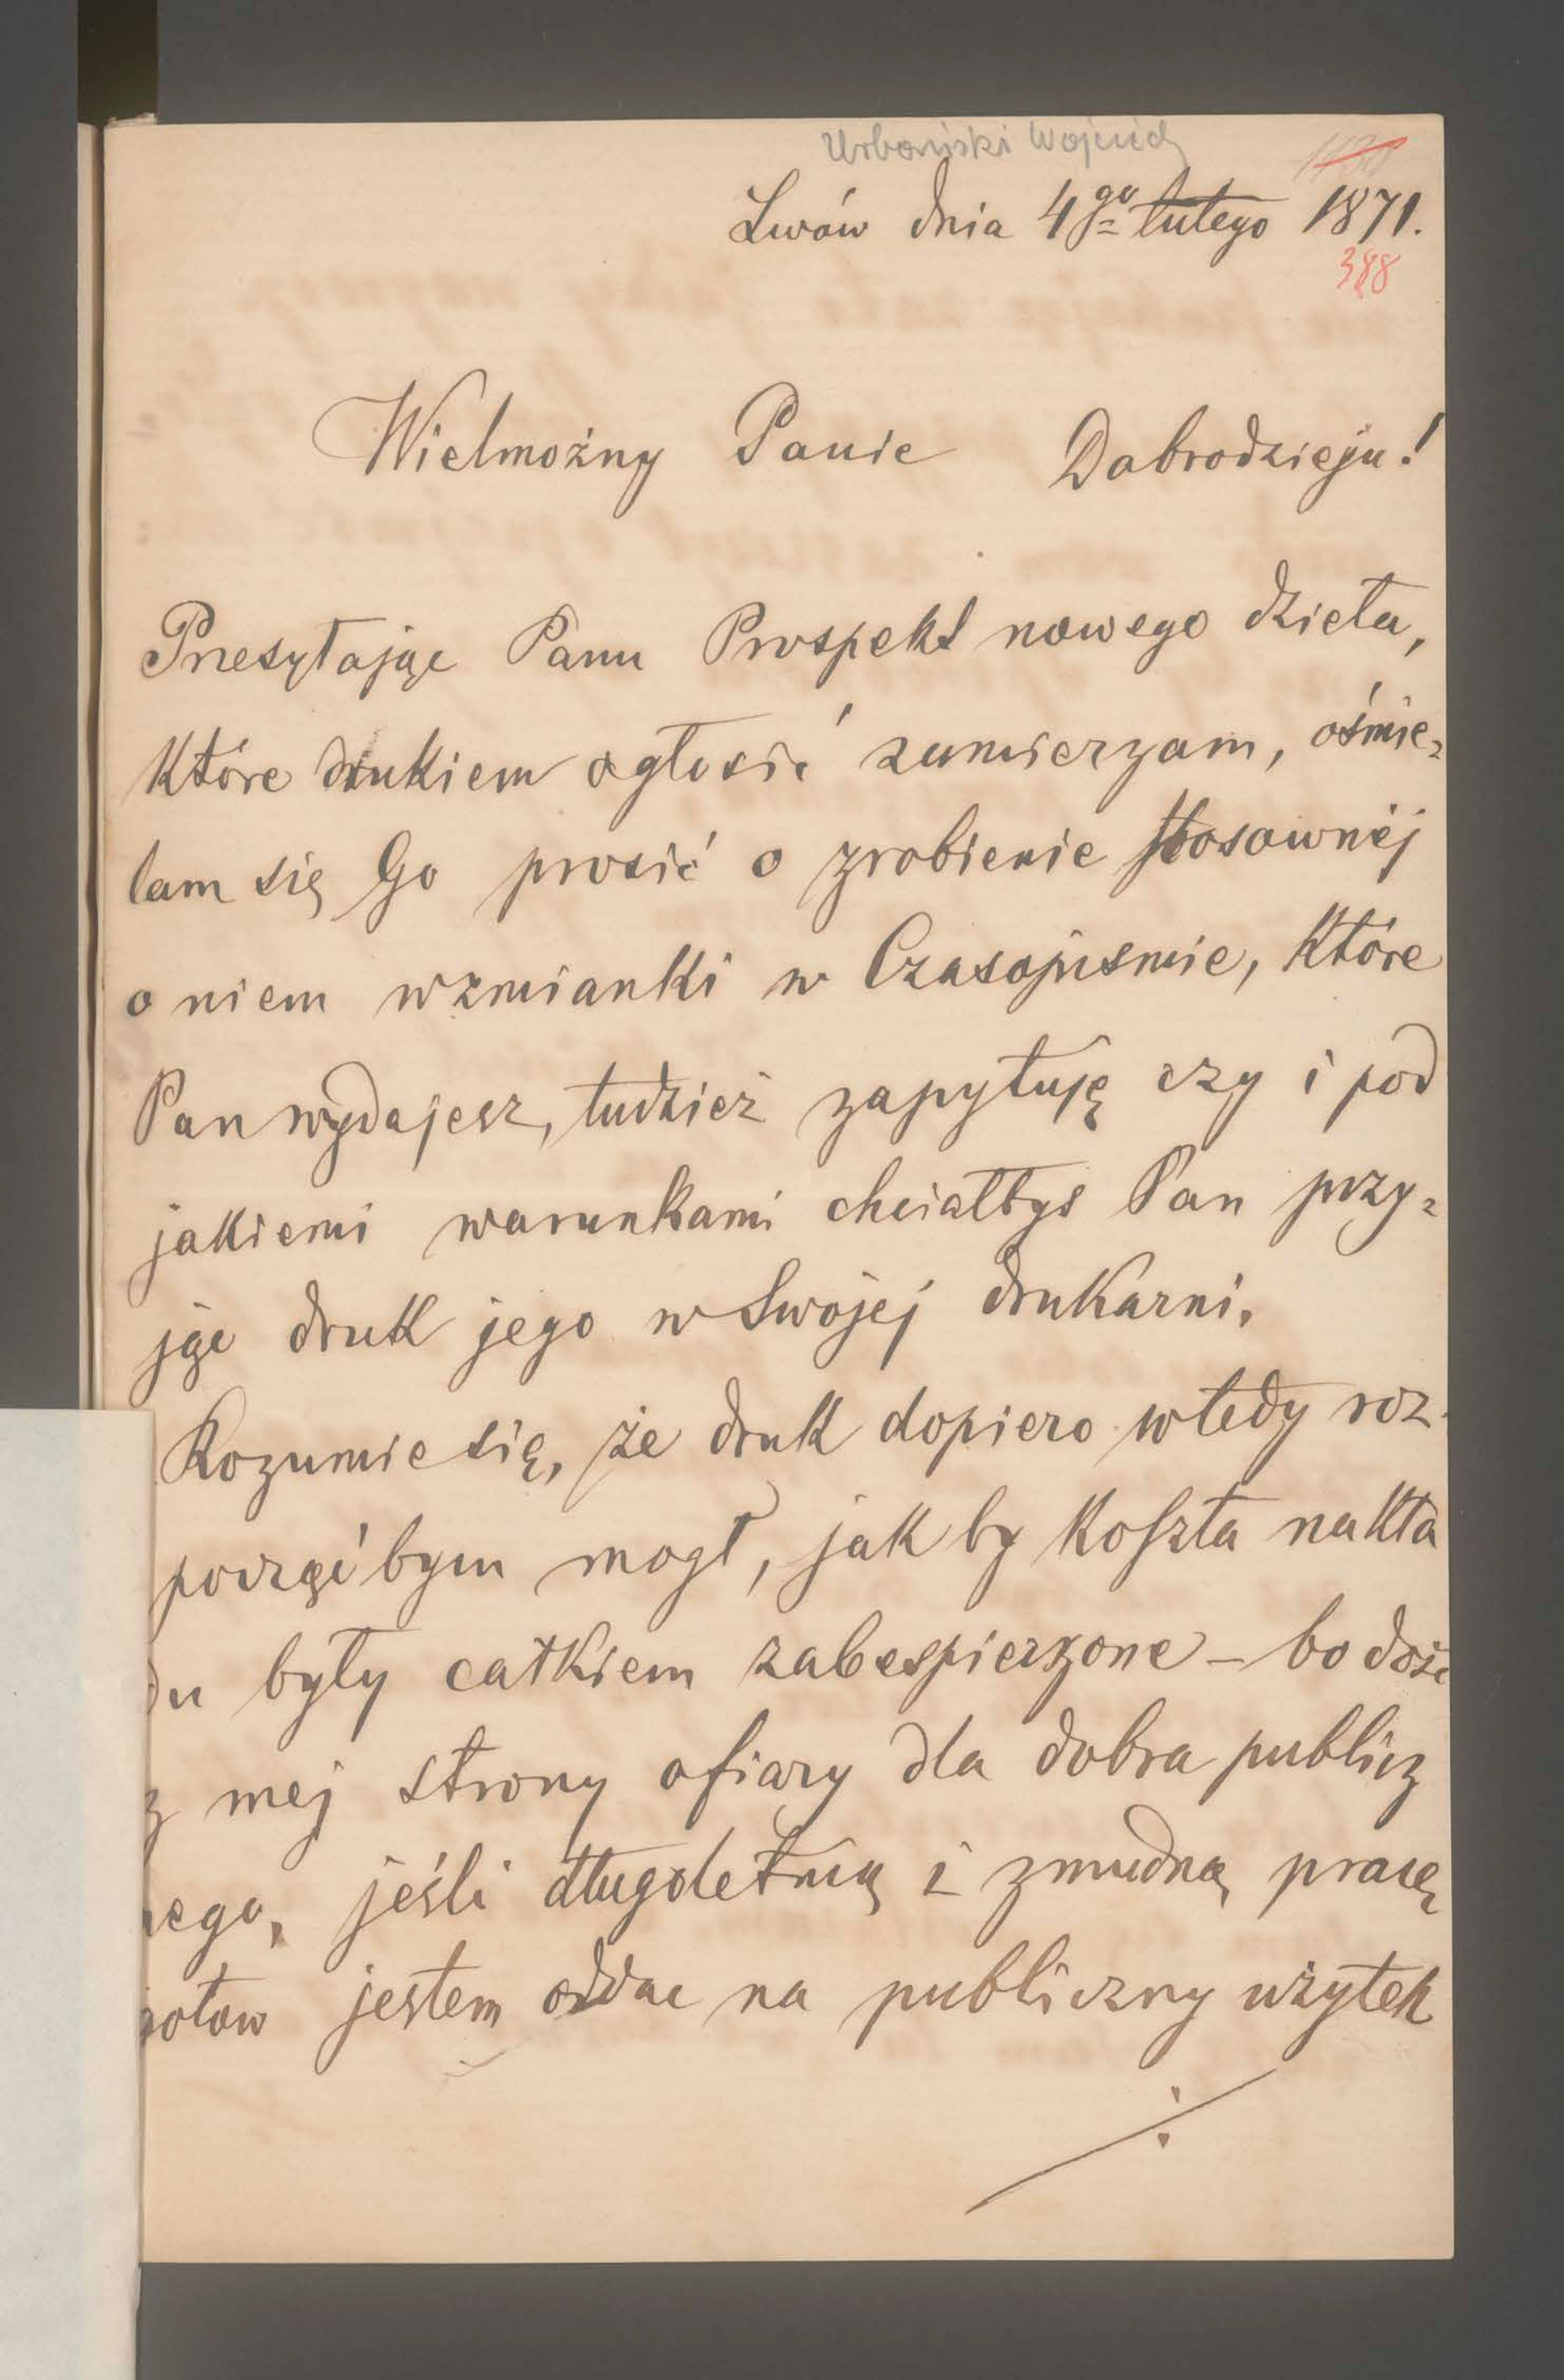 Urbański Wojciech
Lwów dnia 4go lutego 1871.
388
Wielmożny Panie Dobrodzieju!
Przesyłając Panu Prospekt nowego dzieła,
które drukiem ogłosić zamierzam, ośmie=
lam się Go prosić o zrobienie stosownéj
o niem wzmianki w Czasopismie, które
Pan wydajesz, tudzież zapytuję czy i pod
jakiemi warunkami chciałbys Pan przy=
jąć druk jego w Swojej drukarni.
Rozumie się, że druk dopiero wtedy roz-
począćbym mogł, jak by koszta nakła
du były całkiem zabespieczone – bo dość
z mej strony ofiary dla dobra publicz
nego, jeśli długoletnią i zmudną pracę
gotow jestem oddac na publiczny użytek
./.